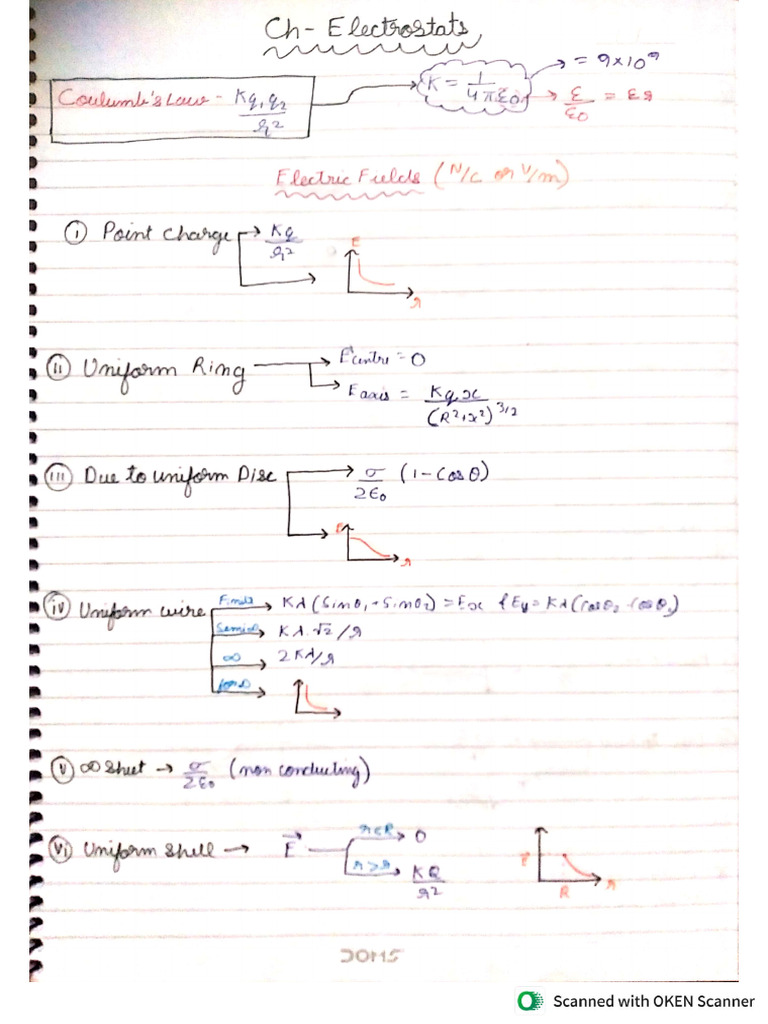 Ch- Electrostats
Coulumb's Law - Kq1q2/r²
K = 1/4πε0
= 9×10⁹
ε/ε0 = εr
Electric Fields (N/C or V/m)
(i) Point Charge → Kq/r²
E
r
(ii) Uniform Ring → Ecentre = 0
E axis = Kqx/(R²+x²)^3/2
(iii) Due to uniform Disc → σ/2ε0 (1 - Cos θ)
E
r
(iv) Uniform wire
Finite → Kλ (Sinθ1 + Sinθ2) = Ex & Ey = Kλ(cosθ2 - cosθ1)
Semi∞ → Kλ √2/r
∞ → 2Kλ/r
(v) ∞ Sheet → σ/2ε0 (non conducting)
(vi) Uniform Shell → E⃗
r<R → 0
r>r → KQ/r²
E
R
r
DOMS
Scanned with OKEN Scanner